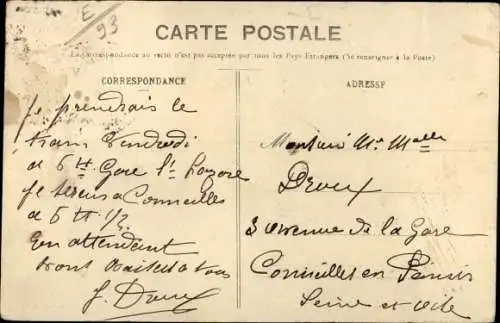 E
93
CARTE POSTALE
La Correspondance au recto n'est pas acceptée par tous les Pays Etrangers (Se renseigner à la Poste)
CORRESPONDANCE
Je prendrais le
tram Vendredi
de 5 H Gare St Lazare
Je serais a Cormeilles
a 6 H 1/2
En attendant
bons baisers a tous
J. Droux
ADRESSE
Monsieur Mme Melle
Droux
3 avenue de la Gare
Cormeilles en Parisis
Seine et Oise